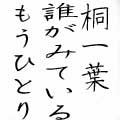 桐一葉
誰がみている
もうひとり